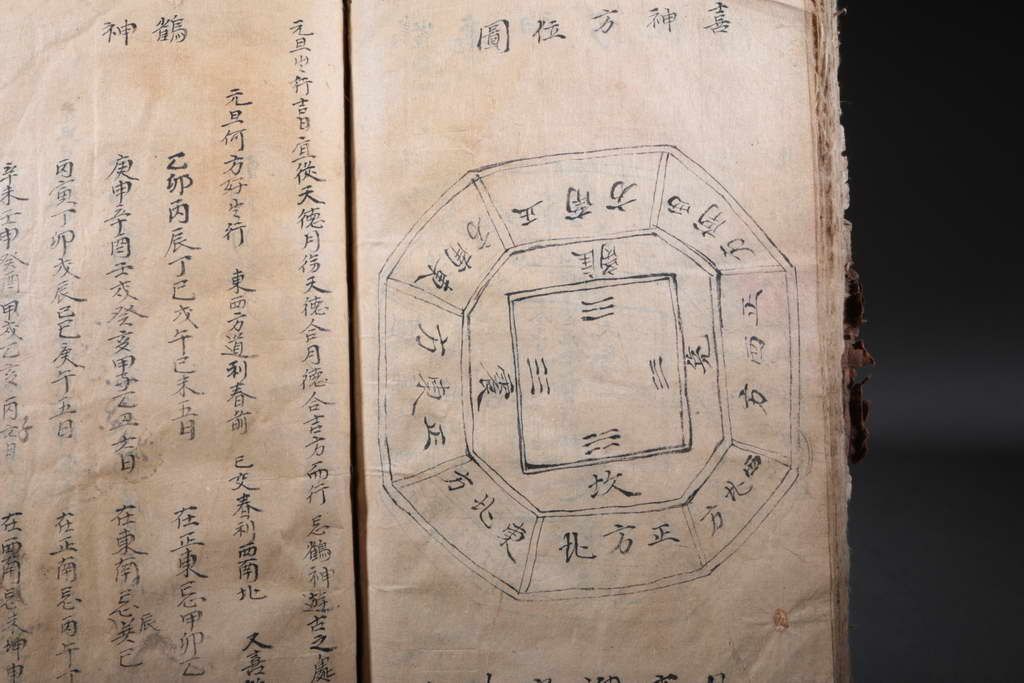 喜神方位圖
正南方
西南方
正西方
西北方
正北方
東北方
正東方
東南方
離
兌
坎
震
元旦出行吉日宜從天德月德天德合月德合吉方而行忌鶴神遊古之處
元旦何方好出行 東西方道利春前 已交春利西南北 又喜
鶴神
乙卯丙辰丁巳戊午己未五日 在正東忌甲卯乙
庚申辛酉壬戌癸亥甲子乙丑六日 在東南忌辰巽巳
丙寅丁卯戊辰己巳庚午五日 在正南忌丙午丁
辛未壬申癸酉甲戌乙亥丙子 在西南忌未坤申